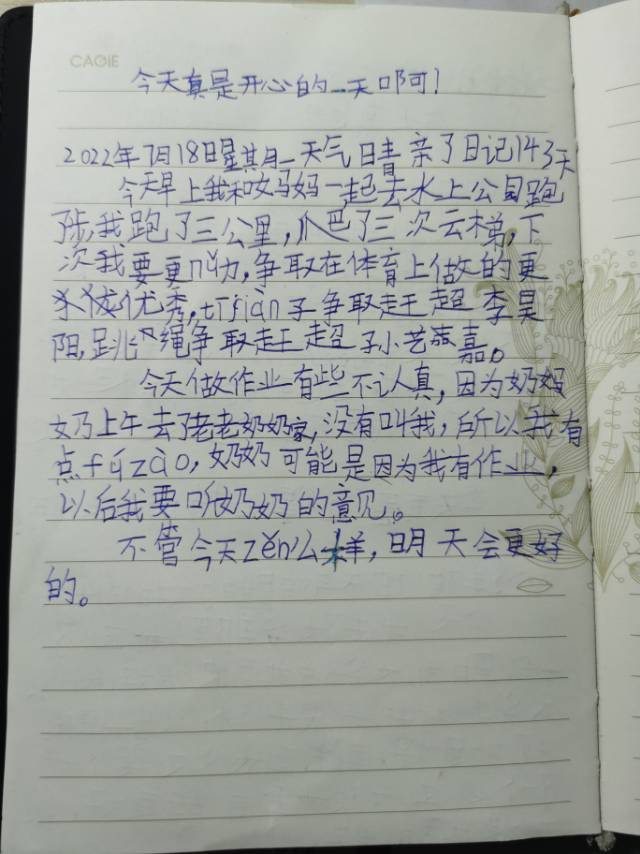 CAGIE
今天真是开心的一天啊可！
2022年7月18日星其月一天气日晴 亲了日记143天
今天早上我和妈妈一起去水上公园跑
步,我跑了三公里,爬了三次云梯,下
次我要更nǔ力,争取在体育上做的更
优秀,tǐ争取赶超李昊
阳,跳绳争取赶超孙艺嘉。
今天做作业有些不认真,因为奶奶
奶上午去了老老奶奶家,没有叫我,所以我有
点fúzào,奶奶可能是因为我有作业,
以后我要听奶奶的意见。
不管今天zěn么样,明天会更好
的。